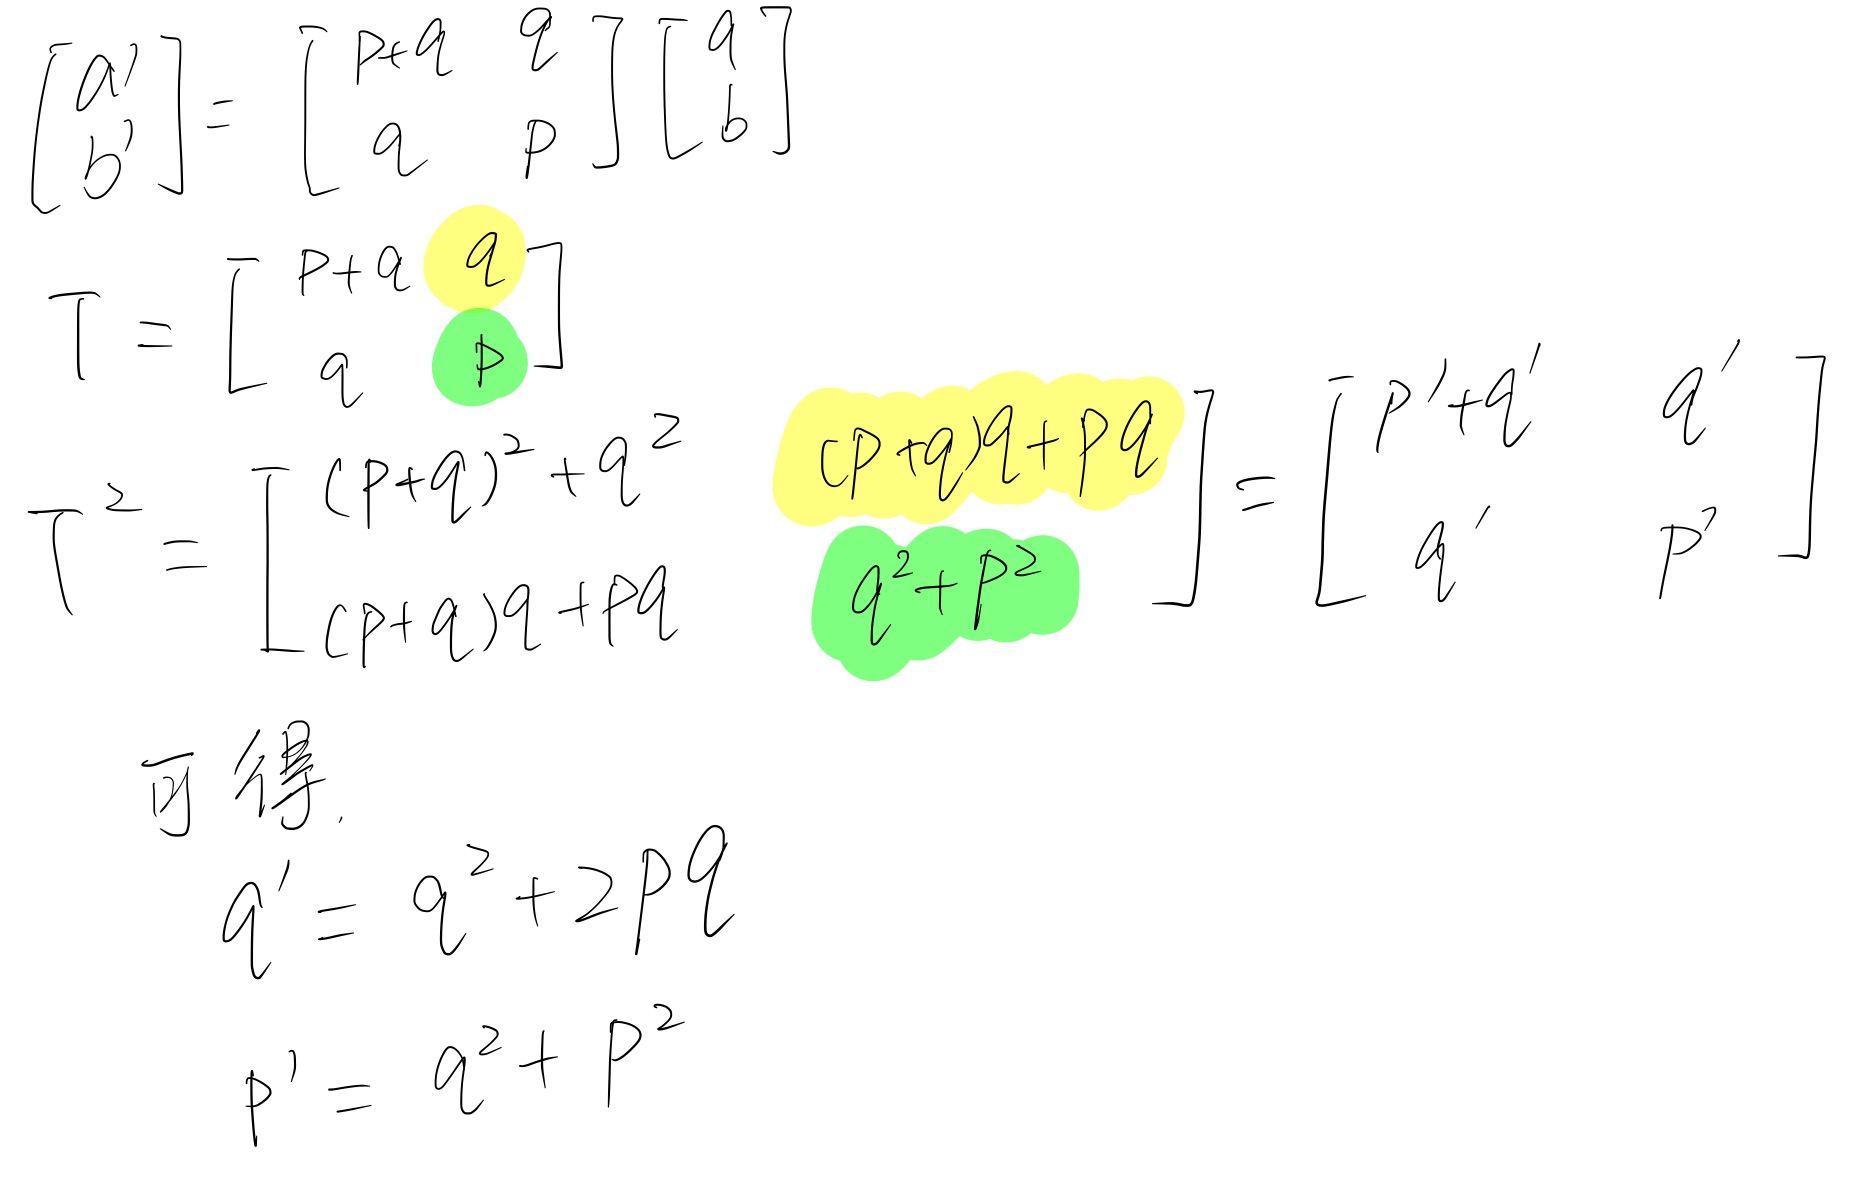 [a' b'] = [p+q q q p] [a b]
T = [p+q q q p]
T² = [(p+q)²+q² (p+q)q+pq (p+q)q+pq q²+p²] = [p'+q' q' q' p']
可得.
q' = q²+2pq
p' = q²+p²